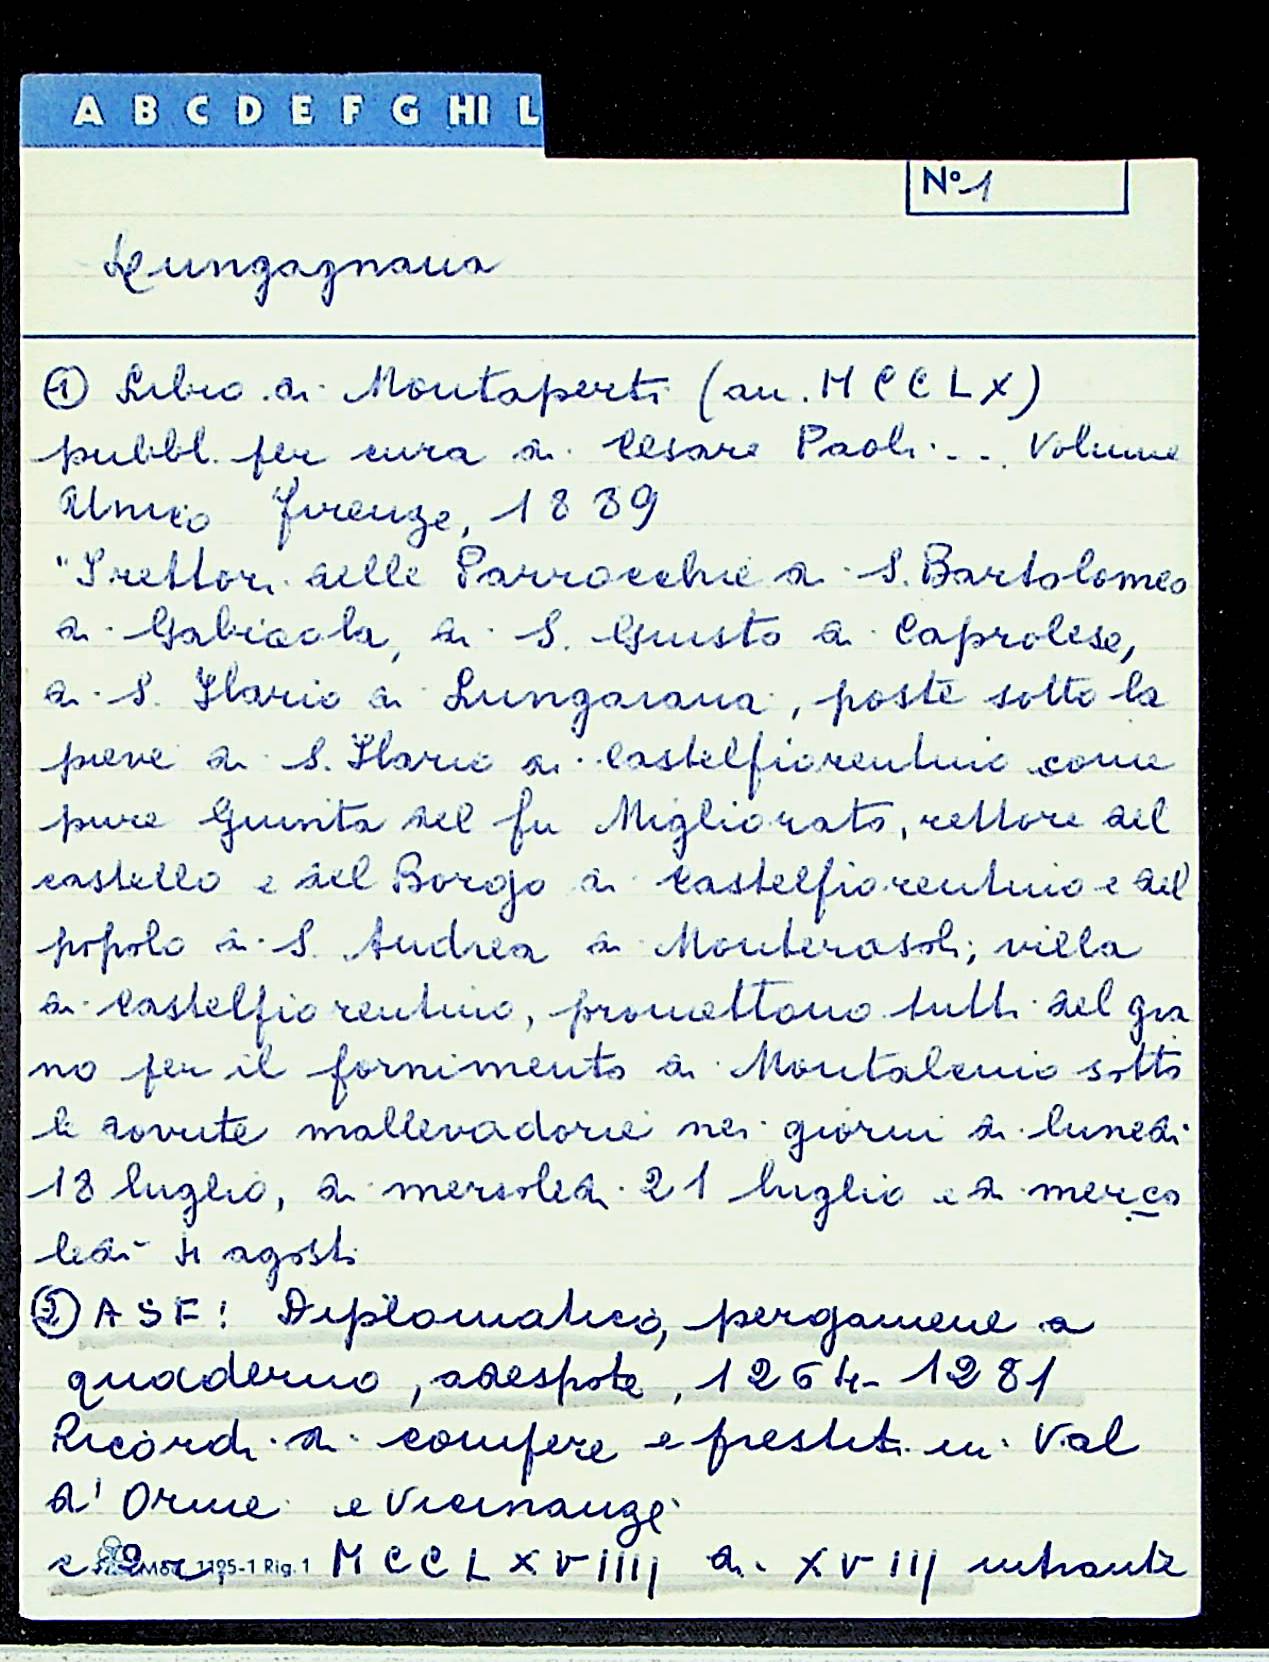 A B C D E F G HI L
Nº 1
Lungagnana
① Libro di Montaperti (an. MCCLX)
pubbl. per cura di Cesare Paoli... Volume
Unico Firenze, 1889
"I rettori delle Parrocchie di S. Bartolomeo
di Gabicola, di S. Giusto di Caprolese,
di S. Ilario di Lungarana, poste sotto la
pieve di S. Ilario di Castelfiorentino come
pure Giunta del fu Migliorato, rettore del
castello e del Borgo di Castelfiorentino e del
popolo di S. Andrea di Monterasoli; villa
di Castelfiorentino, promettono tutti del gra
no per il fornimento di Montalcino sotto
le dovute mallevadorie nei giorni di lunedi
18 luglio, di mercoledi 21 luglio e di merco
ledi 4 agosti
② ASF: Diplomatico, pergamene a
quaderno, adespote, 1264-1281
Ricordi di compere e prestiti in Val
d'Orme e Vicinanze
Mod. 1195-1 Rig. 1 MCCLXVIIII di XVIII intrante